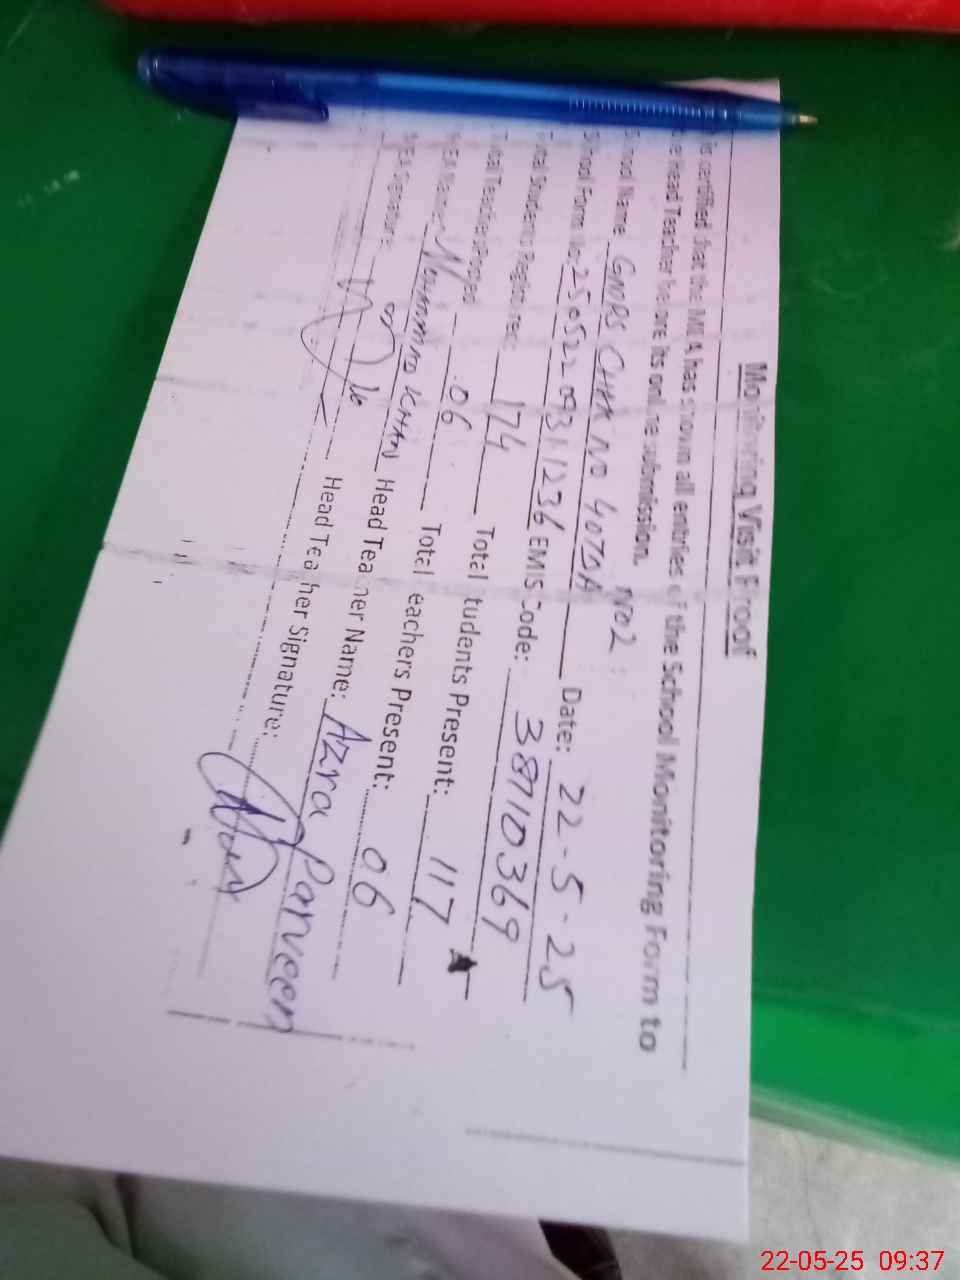 Monitoring Visit Proof
is certified that the MEA has shown all entries of the School Monitoring Form to
the Head Teacher before its online submission.
School Name GMPS CHAK NO 40TDA NO2 Date: 22-5-25
School Form No: 25052209311236 EMIS Code: 38710369
Total Students Registered: 174 Total Students Present: 117
Total Teachers Posted 06 Total Teachers Present: 06
MEA Name: Head Teacher Name: Azra Parveen
MEA Signature: Head Teacher Signature:
22-05-25 09:37